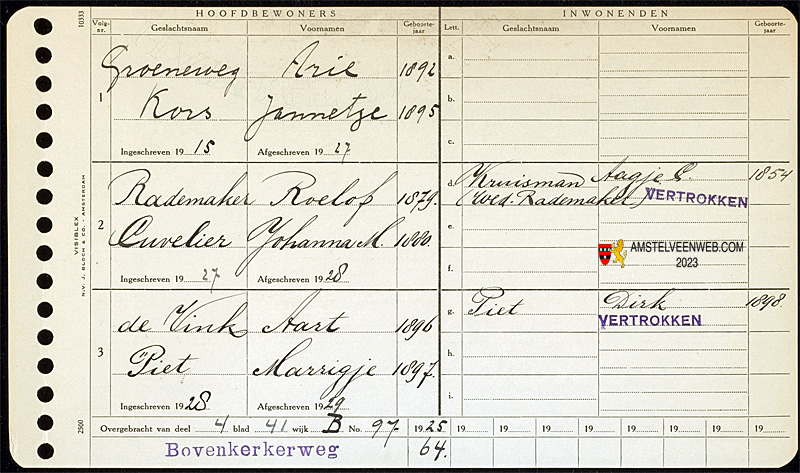 HOOFDBEWONERS INWONENDEN
Volg-nr. Geslachtsnaam Voornamen Geboorte-jaar Lett. Geslachtsnaam Voornamen Geboorte-jaar
10333
1
Groeneweg Arie 1892
Kors Jannetje 1895
Ingeschreven 19 15 Afgeschreven 19 27
a.
b.
c.
2
Rademaker Roelof 1879.
Cuvelier Johanna M. 1880.
Ingeschreven 19 27 Afgeschreven 19 28
d. Kruisman Aagje G. 1854
(wed. Rademaker) VERTROKKEN
e.
f.
AMSTELVEENWEB.COM
2023
3
de Vink Aart 1896
Piet Marrigje 1897.
Ingeschreven 19 28 Afgeschreven 19 29
g. Piet Dirk 1898.
VERTROKKEN
h.
i.
VISIBLEX
N.V. J. BLOCH & CO. AMSTERDAM
2500
Overgebracht van deel 4 blad 41 wijk B No. 97 1925. 19 19 19 19 19 19 19 19
Bovenkerkerweg 64.